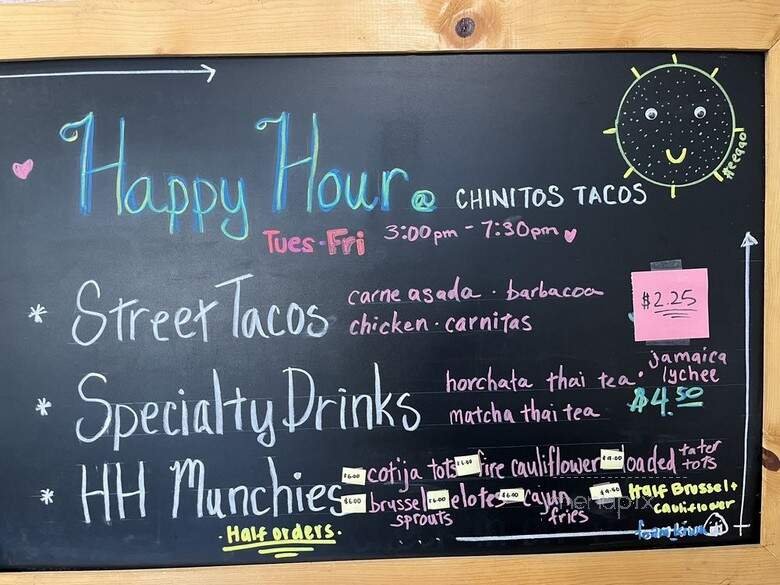 Happy Hour @ CHINITOS TACOS
#eeqqo!
Tues-Fri 3:00pm - 7:30pm
* Street Tacos
carne asada · barbacoa
chicken · carnitas
$2.25
* Specialty Drinks
horchata thai tea · jamaica
lychee
matcha thai tea
$4.50
* HH Munchies
$6.00 cotija tots $6.00 fire cauliflower loaded tater tots
$6.00 brussel sprouts $6.00 elotes $6.00 cajun fries Half Brussel + cauliflower
· Half orders ·
menupix